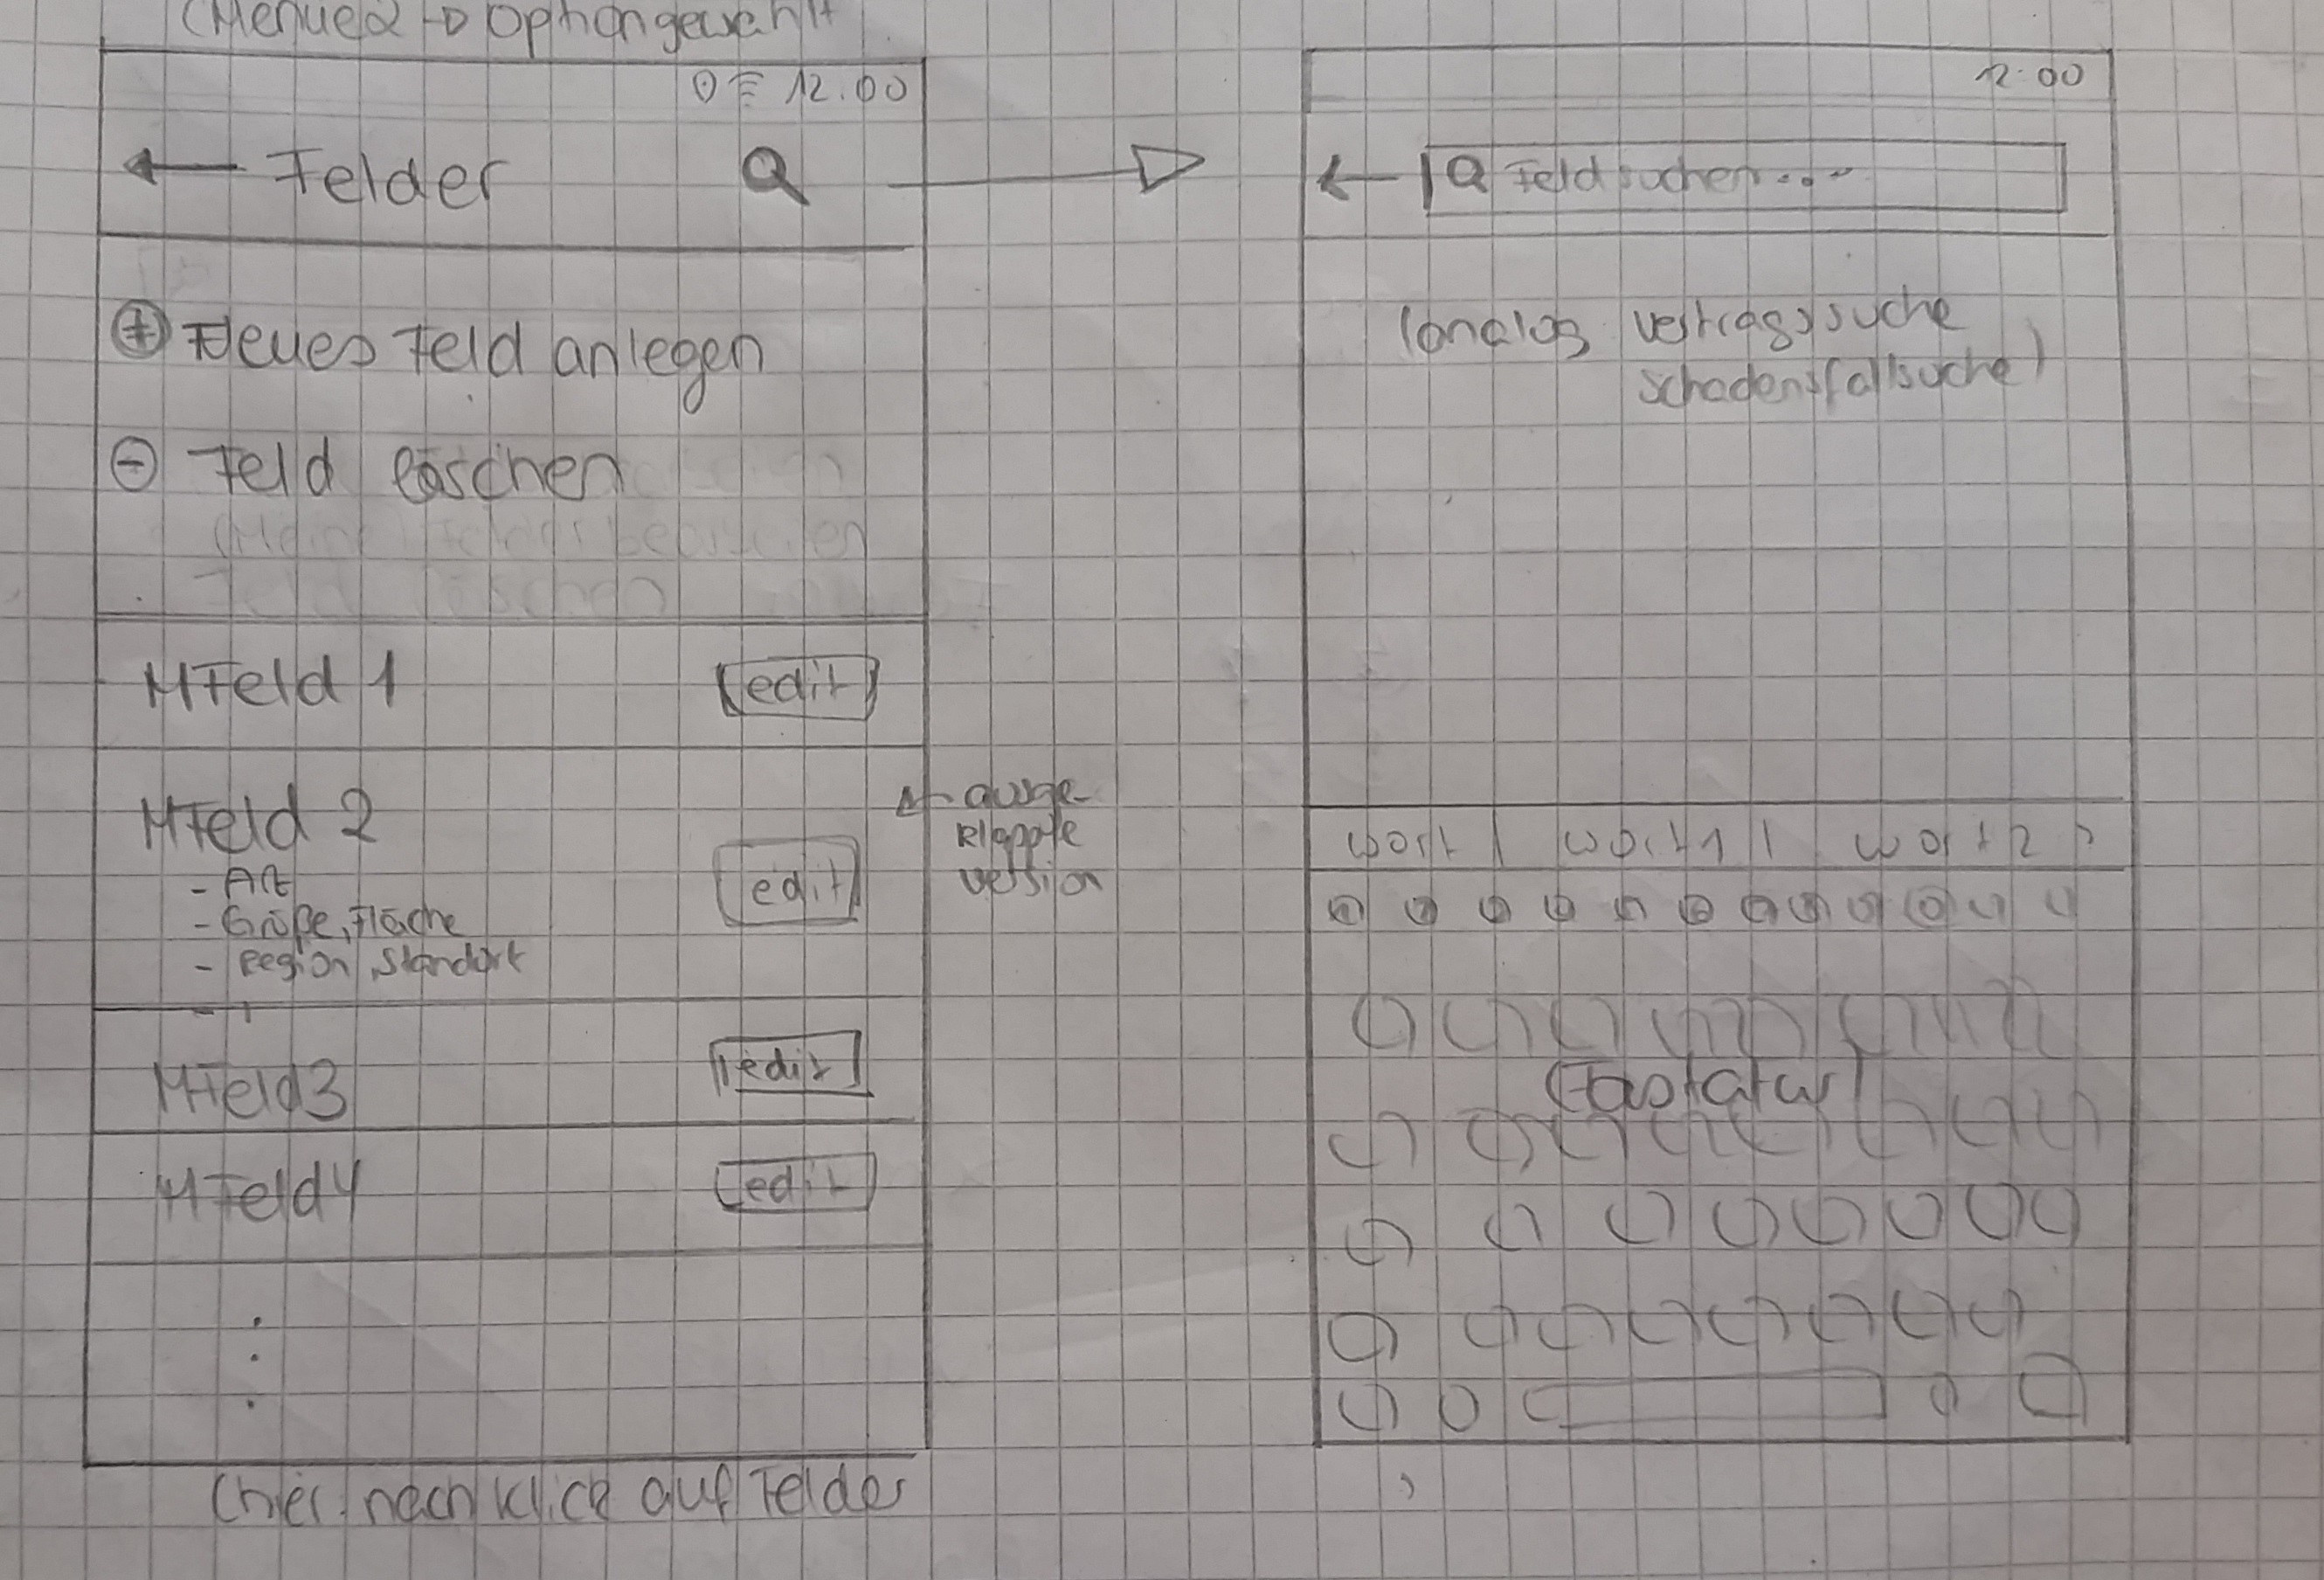 (Menue2 → Option gewählt
12.00
← Felder
⊕ Neues Feld anlegen
⊖ Feld löschen
Feld löschen
Feld 1 edit
Feld 2
- Art
- Größe, Fläche
- Region, Standort
edit
ausge-
klappte
version
Feld3 edit
Feld4 edit
(hier: nach Klick auf Felder
12:00
← Feld suchen...
(analog Vertragssuche
Schadensfallsuche)
wort | wort1 | wort2
(Tastatur)